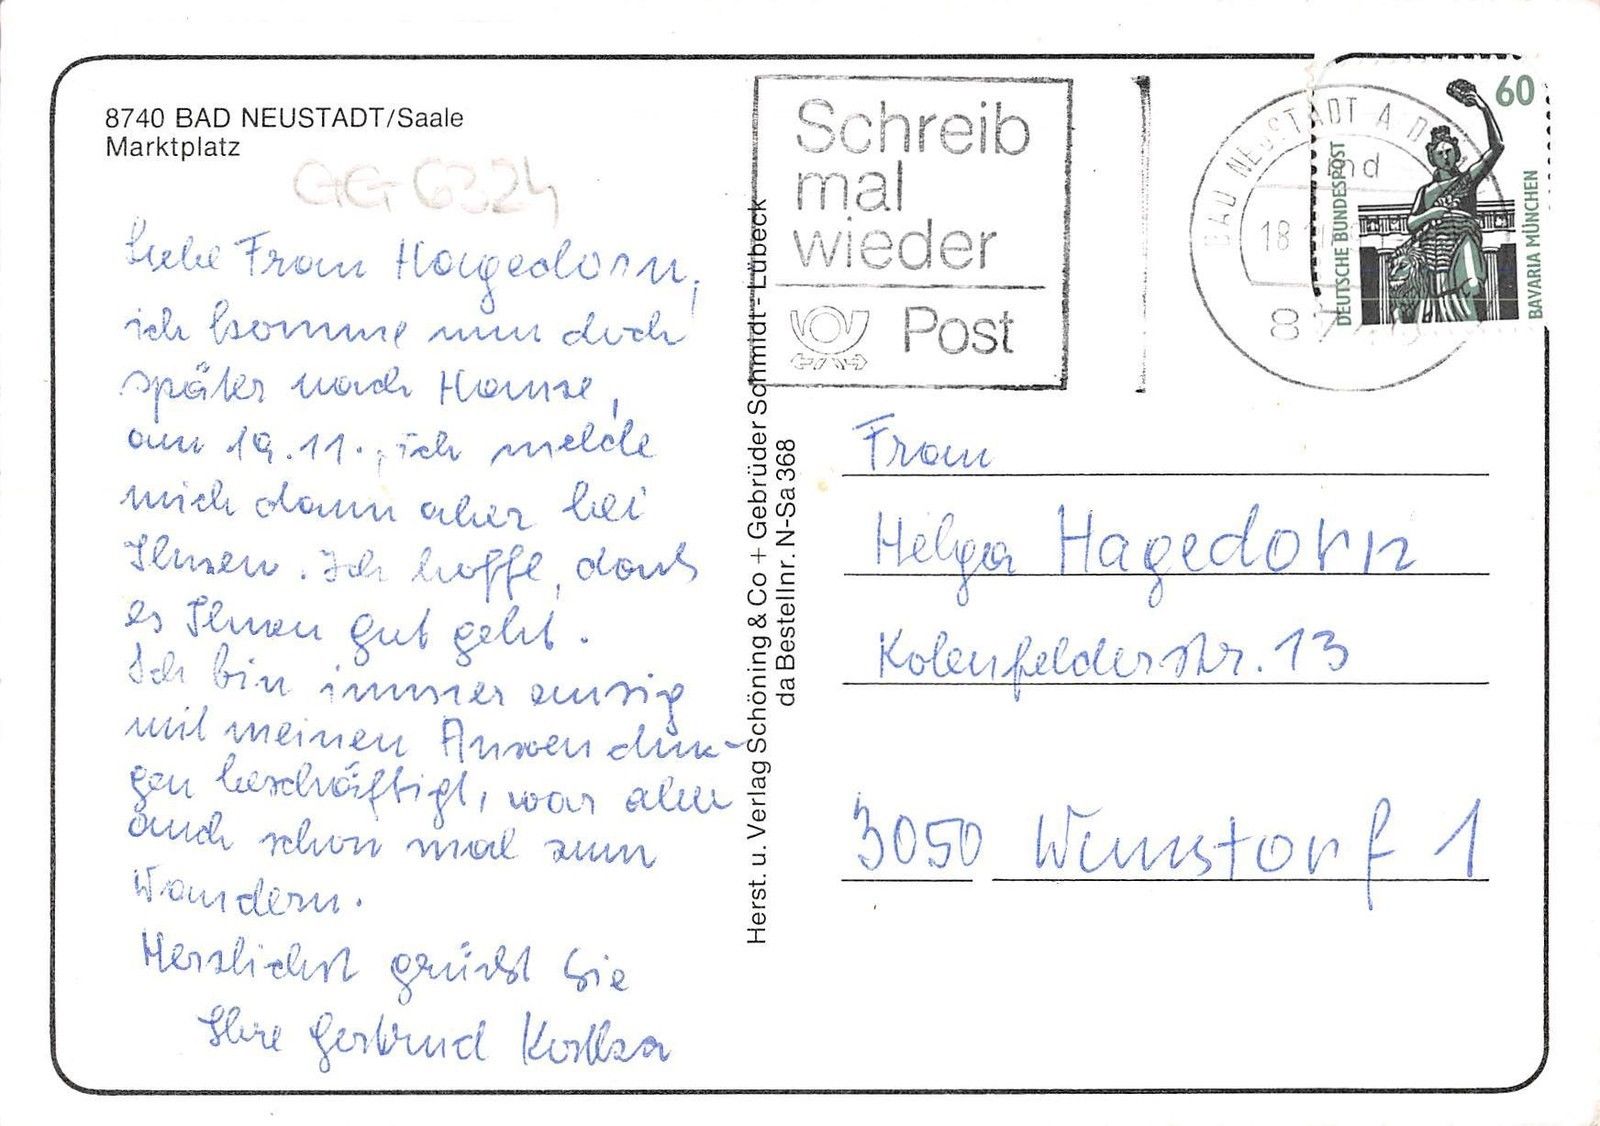 8740 BAD NEUSTADT/Saale
Marktplatz
GG 6324
Liebe Frau Hagedorn,
ich komme nun doch
später nach Hause,
am 19.11., ich melde
mich dann aber bei
Ihnen. Ich hoffe, daß
es Ihnen gut geht.
Ich bin immer emsig
mit meinen Anwendun-
gen beschäftigt, war aber
auch schon mal zum
Wandern.
Herzlichst grüßt Sie
Ihre Gertrud
Herst. u. Verlag Schöning & Co + Gebrüder Schmidt - Lübeck
da Bestellnr. N-Sa 368
Schreib
mal
wieder
Post
BAD NEUSTADT A D
md
18
60
DEUTSCHE BUNDESPOST
BAVARIA MÜNCHEN
Frau
Helga Hagedorn
Kolenfelderstr. 13
3050 Wunstorf 1